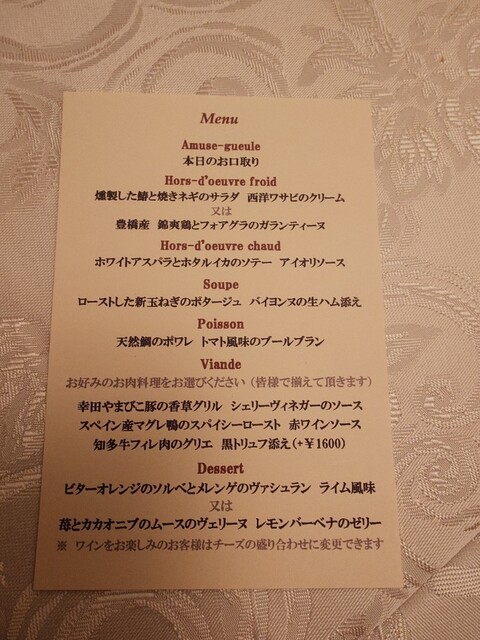 Menu
Amuse-gueule
本日のお口取り
Hors-d'oeuvre froid
燻製した鰆と焼きネギのサラダ 西洋ワサビのクリーム
又は
豊橋産 錦爽鶏とフォアグラのガランティーヌ
Hors-d'oeuvre chaud
ホワイトアスパラとホタルイカのソテー アイオリソース
Soupe
ローストした新玉ねぎのポタージュ バイヨンヌの生ハム添え
Poisson
天然鯛のポワレ トマト風味のブールブラン
Viande
お好みのお肉料理をお選びください（皆様で揃えて頂きます）
幸田やまびこ豚の香草グリル シェリーヴィネガーのソース
スペイン産マグレ鴨のスパイシーロースト 赤ワインソース
知多牛フィレ肉のグリエ 黒トリュフ添え(+￥1600)
Dessert
ビターオレンジのソルベとメレンゲのヴァシュラン ライム風味
又は
苺とカカオニブのムースのヴェリーヌ レモンバーベナのゼリー
※ ワインをお楽しみのお客様はチーズの盛り合わせに変更できます